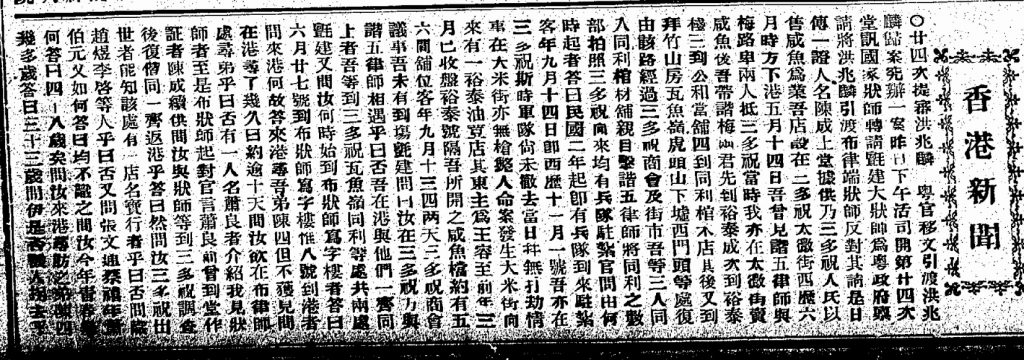 香港新聞
〇廿四次提審洪兆麟　粤官移文引渡洪兆
麟歸案究辦一案昨日下午活司開第廿四次
堂訊國家狀師轉請毡建大狀師為粤政府顧
請將洪兆麟引渡布律端狀師反對其請是日
傳一證人名陳成上堂據供乃三多祝人民以
售咸魚為業吾店設在三多祝太徽街西歷六
月時方下港五月十四日吾曾見諧五律師與
梅路卑兩人抵三多祝當時我亦在太徽街賣
咸魚後吾帶諧梅兩君先到裕泰成次到裕泰
棧三到公和當舖四到同利棺木店其後又到
拜竹山房瓦魚嶺虎頭山下墟西門頭等處復
由該路經過三多祝商會及街市吾等三人同
入同利棺材舖親目擊諧五律師將同利之數
部拍照三多祝向來均有兵隊駐紮官問由何
時起者答曰民國二年起即有兵隊到來駐紮
客年九月十四日即西歷十一月一號吾亦在
三多祝斯時軍隊尙未徹去當日并無打劫情
事在大米街亦無槍斃人命案發生大米街向
來有一裕泰油荳店其東主為王容至前年三
月已收盤裕泰號隔吾所開之咸魚檔約有五
六間舖位客年九月十三四兩天三多祝商會
議事吾未有到塲毡建問曰汝在三多祝乃與
諧五律師相遇乎曰否吾在港與他們一齊同
上者吾等到三多祝瓦魚嶺同利等處共兩處
毡建又問汝何時始到布狀師寫字樓者答曰
六月廿七號到布狀師寫字樓惟八號到港者
問汝來港何故答來港尋吾弟陳四但不獲見
在港尋了幾久曰約逾十天問汝欲在布律師
處尋弟乎曰否有一人名蕭良者介紹我見狀
師者至是布狀師起對官言蕭良前曾到堂作
証者陳成續供問汝與狀師等到三多祝調查
後復偕同一齊返港乎答曰然問汝三多祝出
世者能知該處有一店名寶行者乎曰否問
趙煜李啓等人乎曰否又問張文連蔡
伯元又如何答曰均不識之問汝今年
何答曰四十八歲矣問汝來港尋訪之弟陳四
幾多歲答曰三十三歲問伊是否